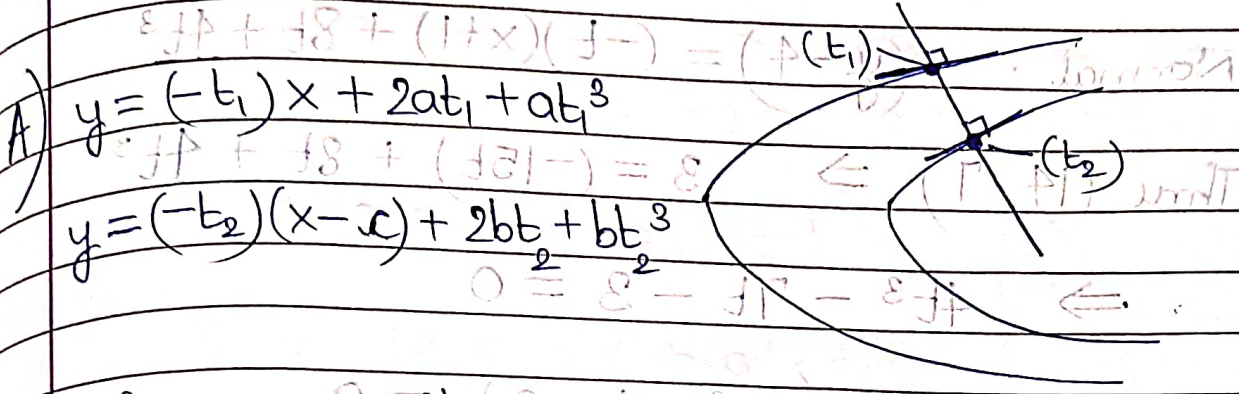 A) y = (-t₁)x + 2at₁ + at₁³
y = (-t₂)(x-c) + 2bt₂ + bt₂³
(t₁)
(t₂)